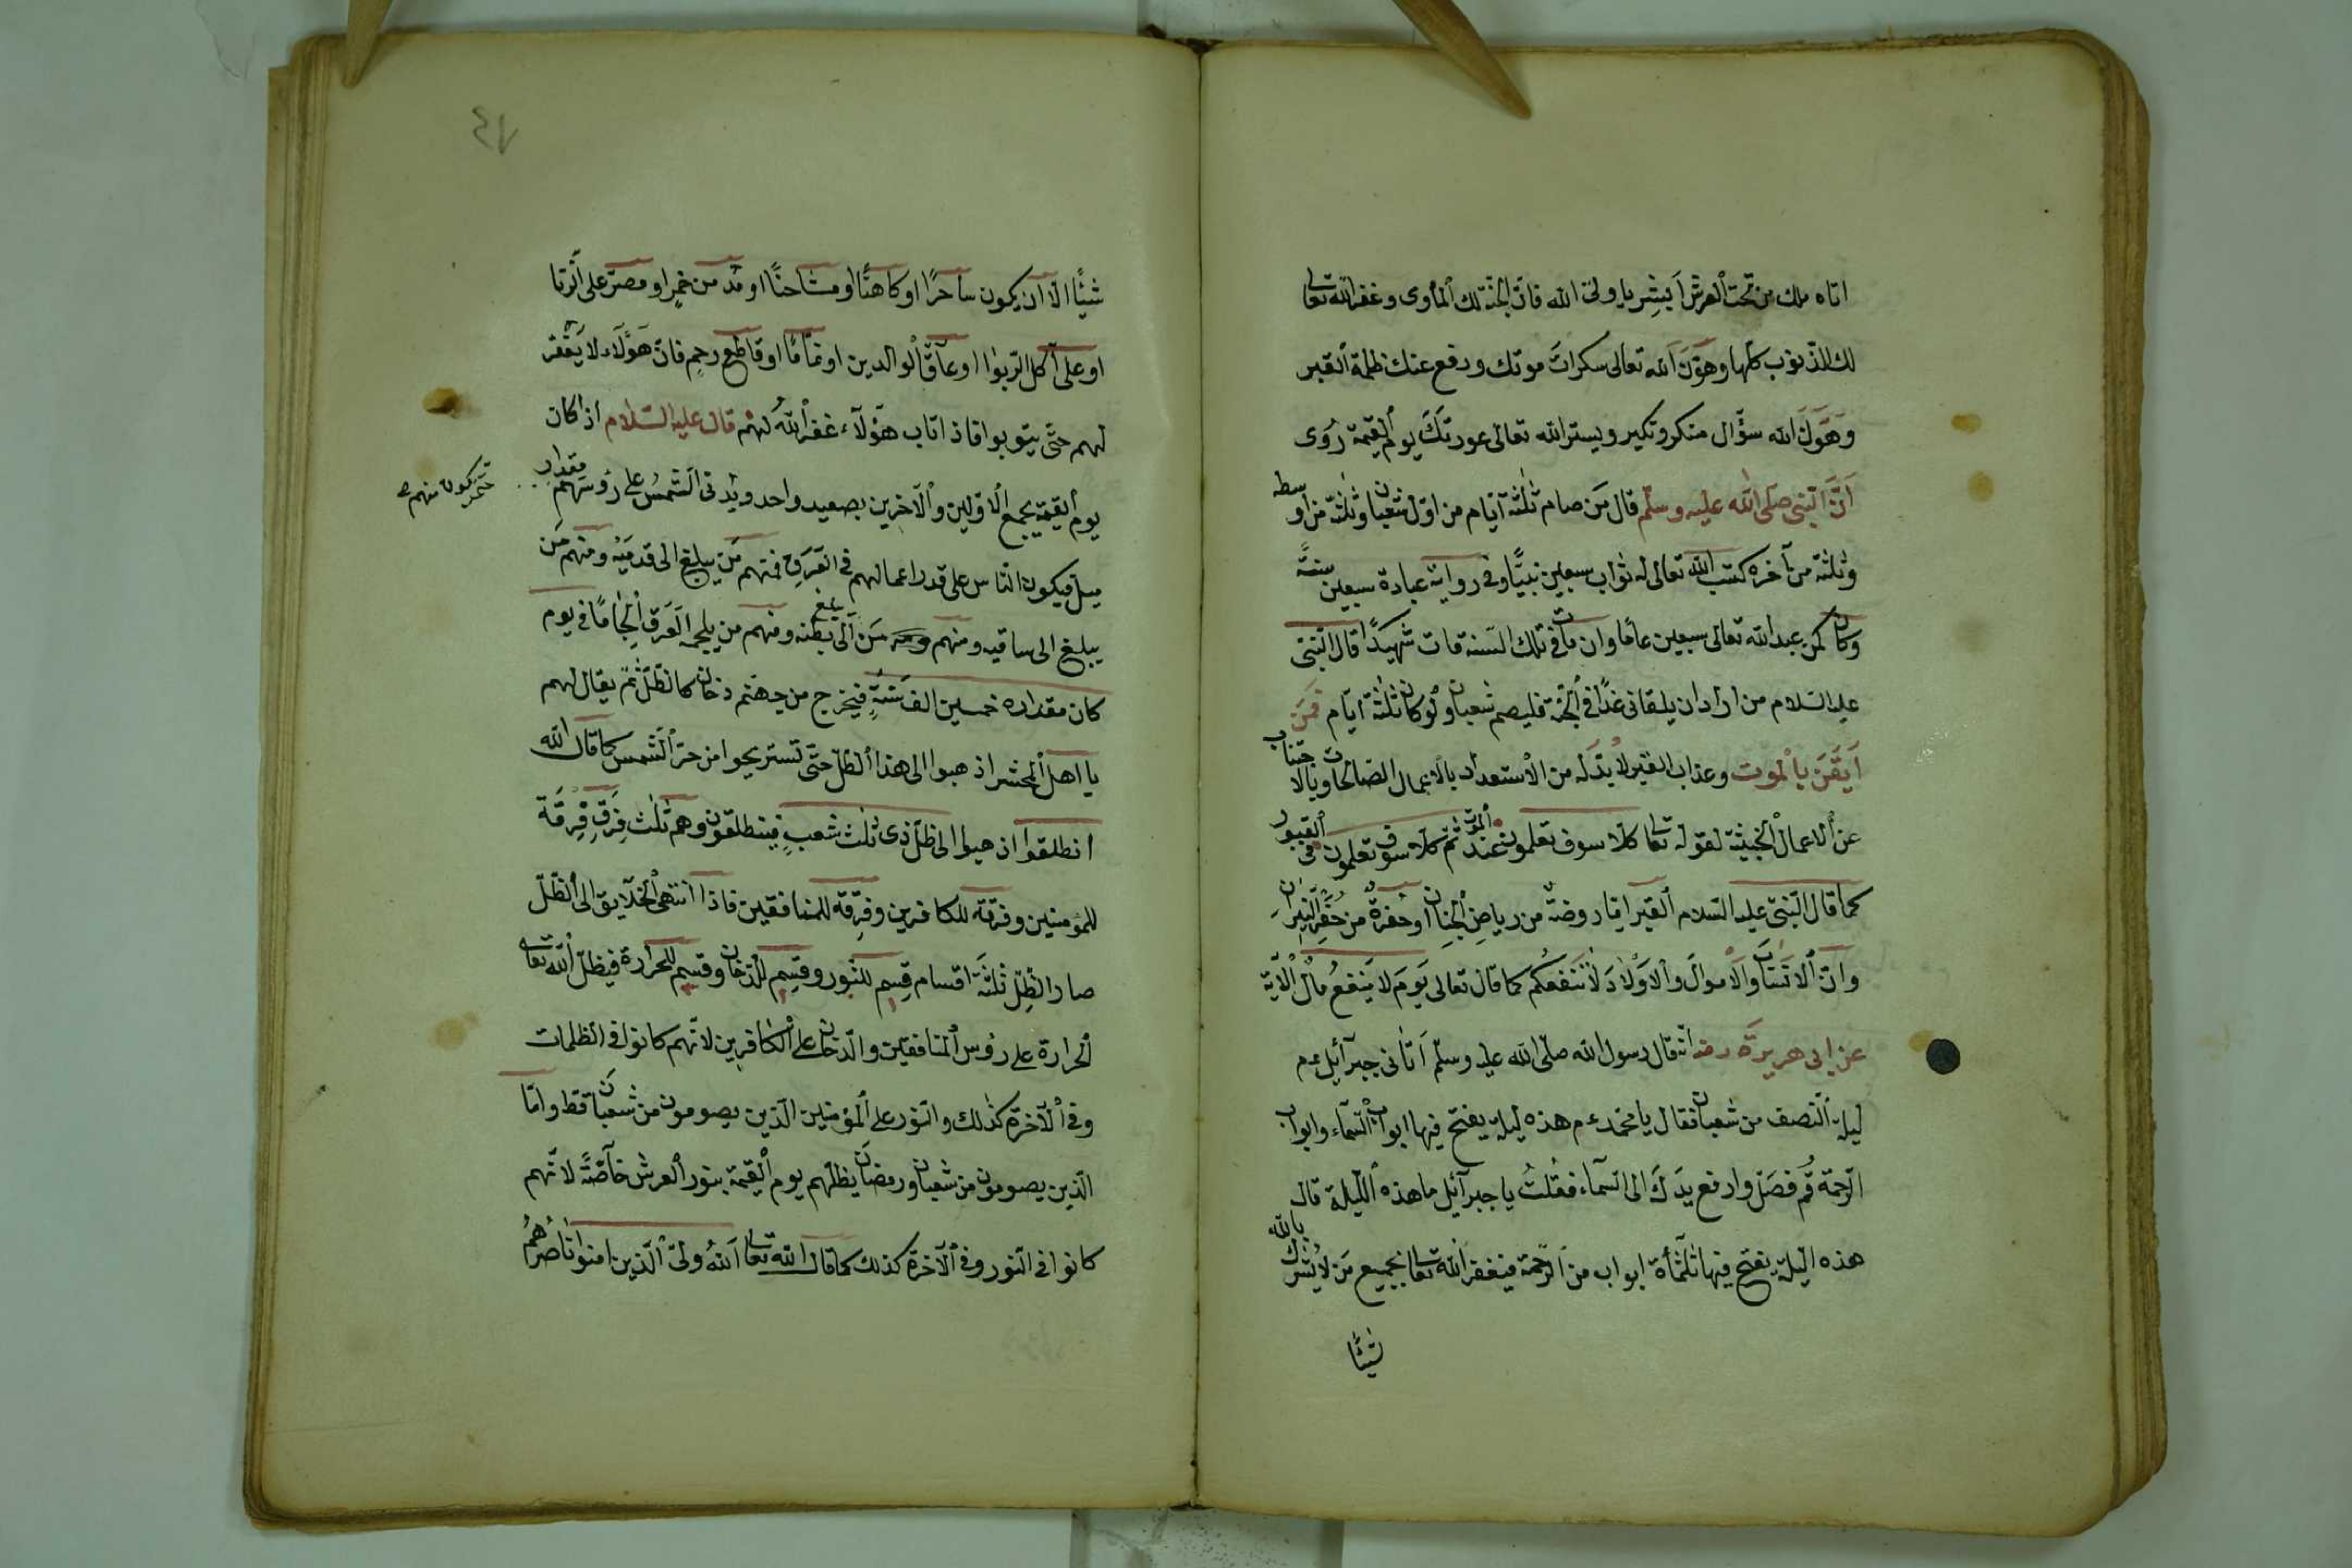 اتاه ملك من تحت العرش اَبشِر يا ولىّ الله فانّ الجنّة لك المأوى وغفر الله تعالى
لك الذّنوب كلّها وهَوَّنَ الله تعالى سكرات موتك ودفع عنك ظلمة القبر
وهَوَّنَ الله سؤال منكر ونكير ويستر الله تعالى عورتك يوم القيمة رُوى
اَنَّ النّبى صلّى الله عليه وسلّم قال مَن صام ثلثة ايّام من اوّل شعبان وثلثة من اوسطه
وثلثة من آخره كتب الله تعالى له ثواب سبعين نبيًّا وفى رواية عبادة سبعين سنةً
وكان كمن عبد الله تعالى سبعين عامًا وان مات فى تلك السّنة مات شهيدًا قال النّبىّ
عليه السّلام من اراد ان يلقانى غدًا فى الجنّة فليصم شعبان ولو كان ثلثة ايّام فمَن
اَيقَنَ بالموت وعذاب القبر لا بدّ له من الاستعداد بالاعمال الصّالحات وبالاجتناب
عن الاعمال الخبيثة لقوله تعالى كلّا سوف تعلمون عند الموت ثمّ كلّا سوف تعلمون فى القبور
كما قال النّبىّ عليه السّلام القبر امّا روضةٌ من رياضِ الجنان او حُفرةٌ من حُفَرِ النّيران
وانّ الانساب والاموالَ والاَوْلادَ لا تَنفعكُم كما قال تعالى يَوم لا يَنفعُ مالٌ الآية
عن ابى هريرة رضه انّه قال رسول الله صلّى الله عليه وسلّم اَتانى جبرآئيل ع م
ليلة النّصف من شعبان فقال يا محمّد ع م هذه ليلة يفتح فيها ابواب السّمآء وابواب
الرّحمة قُم فصَلّ وارفع يدَكَ الى السّمآء فقُلتُ يا جبرآئيل ما هذه اللّيلة قال
هذه اللّيلة يفتح فيها ثلثمأة ابواب من الرّحمة فيغفر الله تعالى لجميع مَن لا يُشرك بالله
شيئًا
٤٧
شيئًا الّا ان يكون ساحرًا او كاهنًا او مشاحنًا او مُدمن خمرٍ او مصرّ على الزّنا
او على آكل الرّبوا او عاقّ الوالدين او نمّامًا او قاطع رحِمٍ فانّ هَؤُلَاءِ لا يَغْفر
لهم حتّى يتوبوا فاذا تاب هؤلآء غفر اللهُ لهم قال عليه السّلام اذا كان
يوم القيمة يجمع الاوّلين والآخرين بصعيد واحد ويدنى الشّمسُ على رؤسهم مقدار
حتّى يكون منهم ص
ميل فيكون النّاس على قدر اعمالهم فى العَرَقِ فمنهم مَن يبلغ الى قدمَيْه ومنهم مَن
يبلغ الى ساقيه ومنهم مَن يبلغ الى بطنه ومنهم من يلجمه العَرَق اِلجامًا فى يوم
كان مقداره خمسين الف سَنَةٍ فيخرج من جهنّم دخان كالظّلّ ثمّ يقال لهم
يا اهل المحشر اذهبوا الى هذا الظّلّ حتّى تستريحوا من حرّ الشّمس كما قال الله
انطلقوا اذهبوا الى ظلّ ذى ثلث شعبٍ فينطلقون وهم ثلث فِرَقٍ فِرقة
للمؤمنين وفرقة للكافرين وفِرقة للمنافقين فاذا انتهى الخلآيق الى الظّلّ
صار الظّلّ ثلثة اقسام قِسم للنّور وقِسم للدّخان وقسم للحرارة فيظلّ الله تعالى
الحرارة على رؤس المنافقين والدّخان على الكافرين لانّهم كانوا فى الظلمات
وفى الآخرة كذلك والنّور على المؤمنين الذين يصومون من شعبان فقط وامّا
الّذين يصومون من شعبان ورمضان يظلّهم يوم القيمة بنور العرش خآصّةً لانّهم
كانوا فى النّور وفى الآخرة كذلك كما قال الله تعالى اَللهُ ولىّ الّذين امنوا ناصرُهُمْ